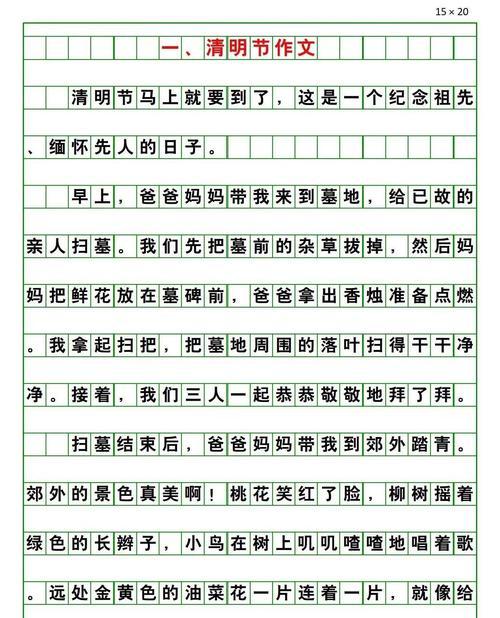 15×20
一、清明节作文
清明节马上就要到了，这是一个纪念祖先
、缅怀先人的日子。
早上，爸爸妈妈带我来到墓地，给已故的
亲人扫墓。我们先把墓前的杂草拔掉，然后妈
妈把鲜花放在墓碑前，爸爸拿出香烛准备点燃
。我拿起扫把，把墓地周围的落叶扫得干干净
净。接着，我们三人一起恭恭敬敬地拜了拜。
扫墓结束后，爸爸妈妈带我到郊外踏青。
郊外的景色真美啊！桃花笑红了脸，柳树摇着
绿色的长辫子，小鸟在树上叽叽喳喳地唱着歌
。远处金黄色的油菜花一片连着一片，就像给